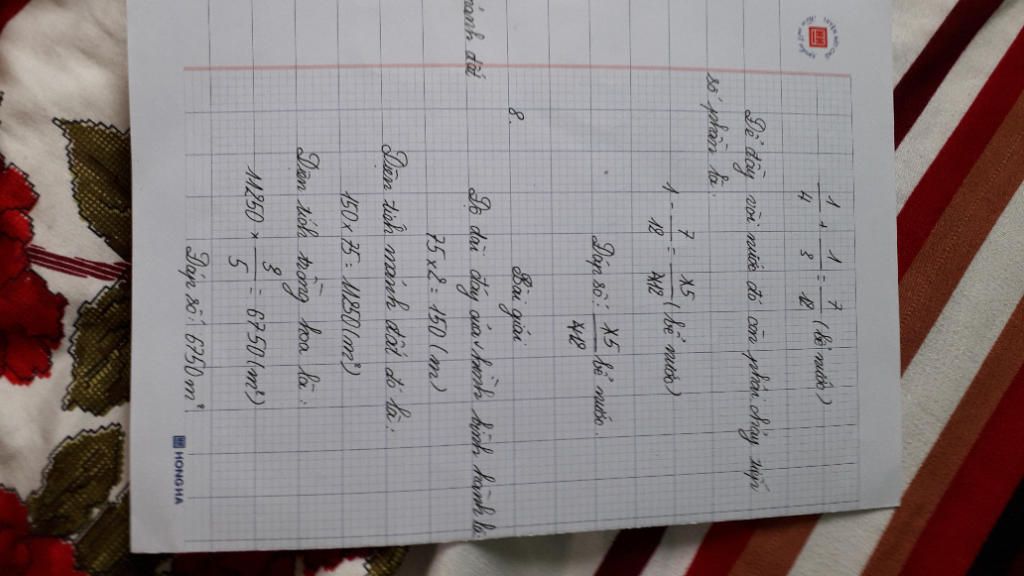 1/4 + 1/3 = 7/12 (bể nước)
Để đầy vòi nước đó cần phải chảy số phần là.
1 - 7/12 = 5/12 (bể nước)
Đáp số: 5/12 bể nước.
8.
Bài giải
Độ dài đáy của hình bình hành là:
75 x 2 = 150 (m)
Diện tích mảnh đất đó là:
150 x 75 = 11250 (m²)
Diện tích trồng hoa là:
11250 x 3/5 = 6750 (m²)
Đáp số: 6750 m²
mảnh đất
HONG HA